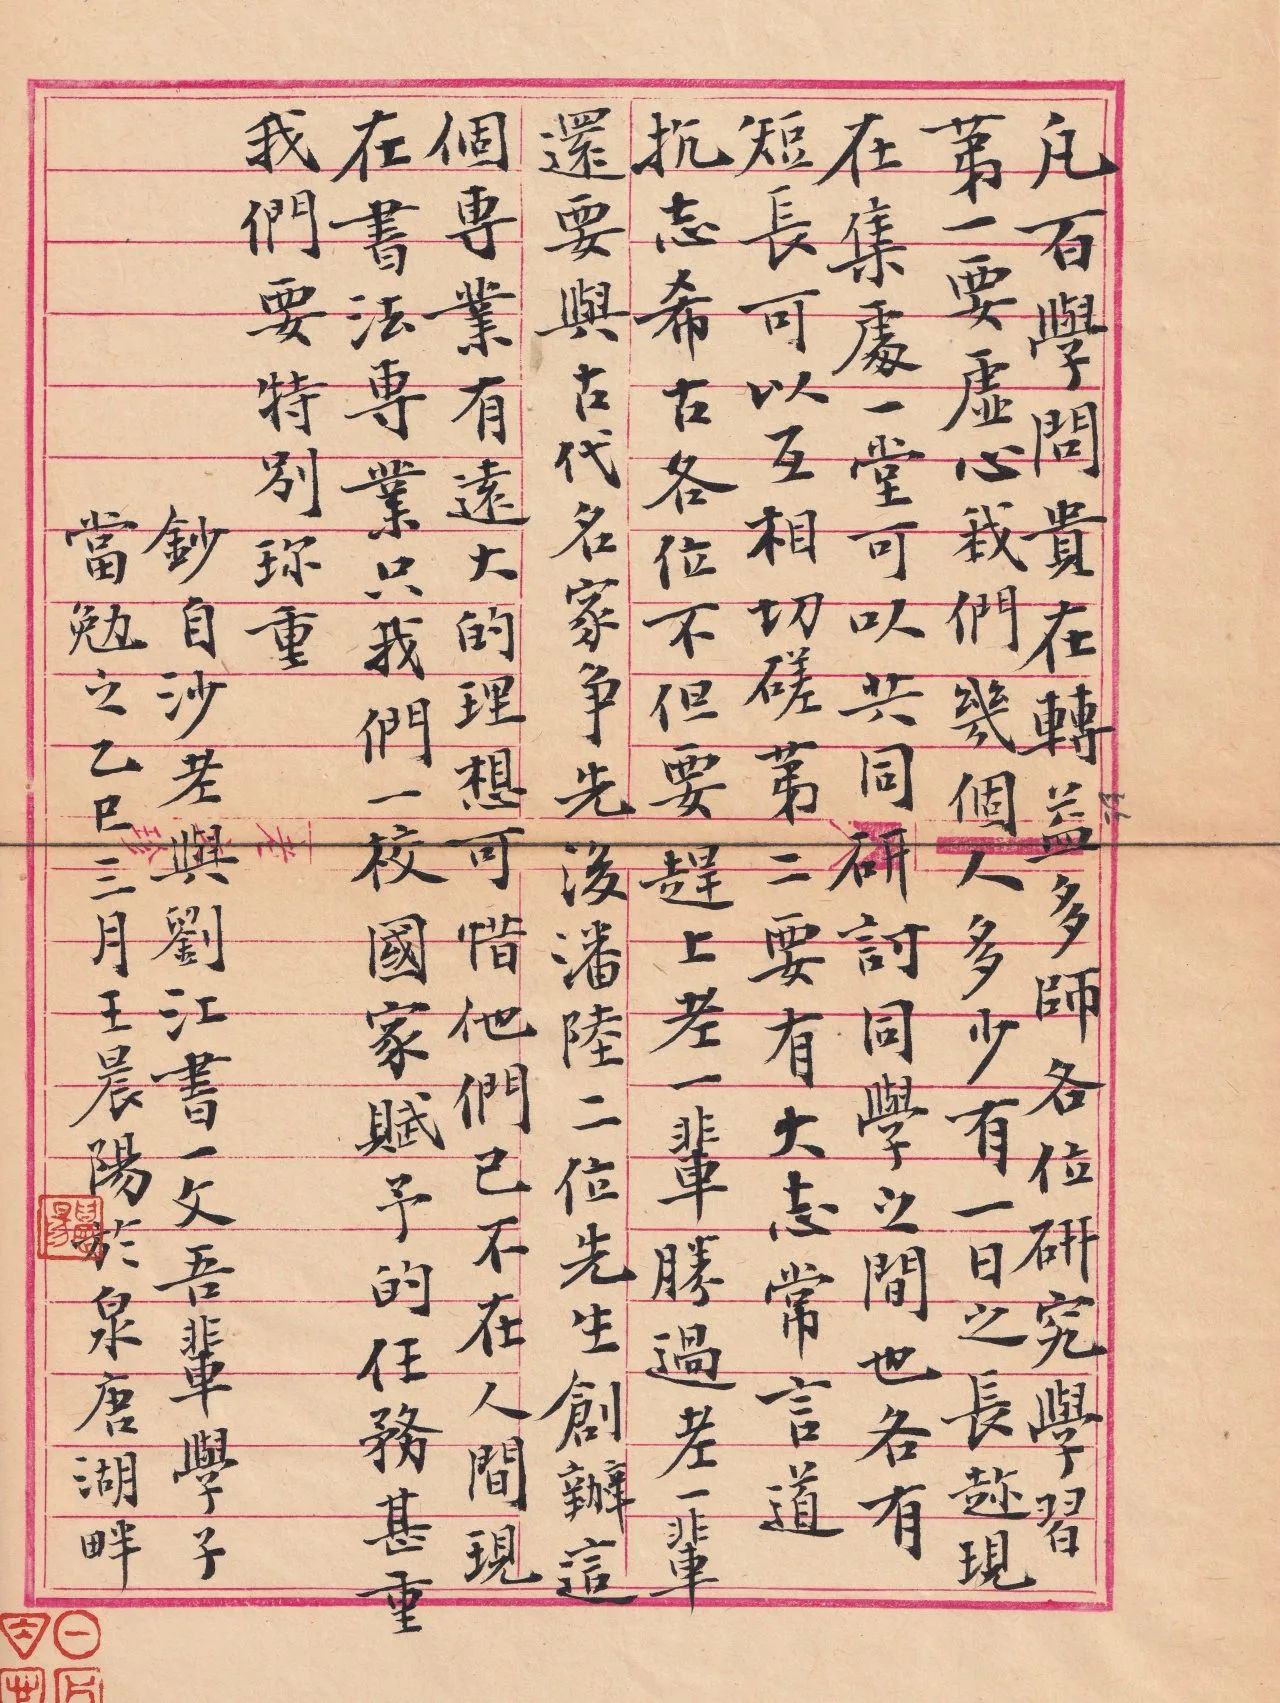 凡百學問貴在轉益多師各位研究學習
第一要虛心我們幾個人多少有一日之長趁現
在集處一堂可以共同研討同學之間也各有
短長可以互相切磋第二要有大志常言道
抗志希古各位不但要趕上老一輩勝過老一輩
還要與古代名家爭先後潘陸二位先生創辦這
個專業有遠大的理想可惜他們已不在人間現
在書法專業只我們一校國家賦予的任務甚重
我們要特別珍重
鈔自沙老與劉江書一文吾輩學子
當勉之乙巳三月王晨陽於泉唐湖畔